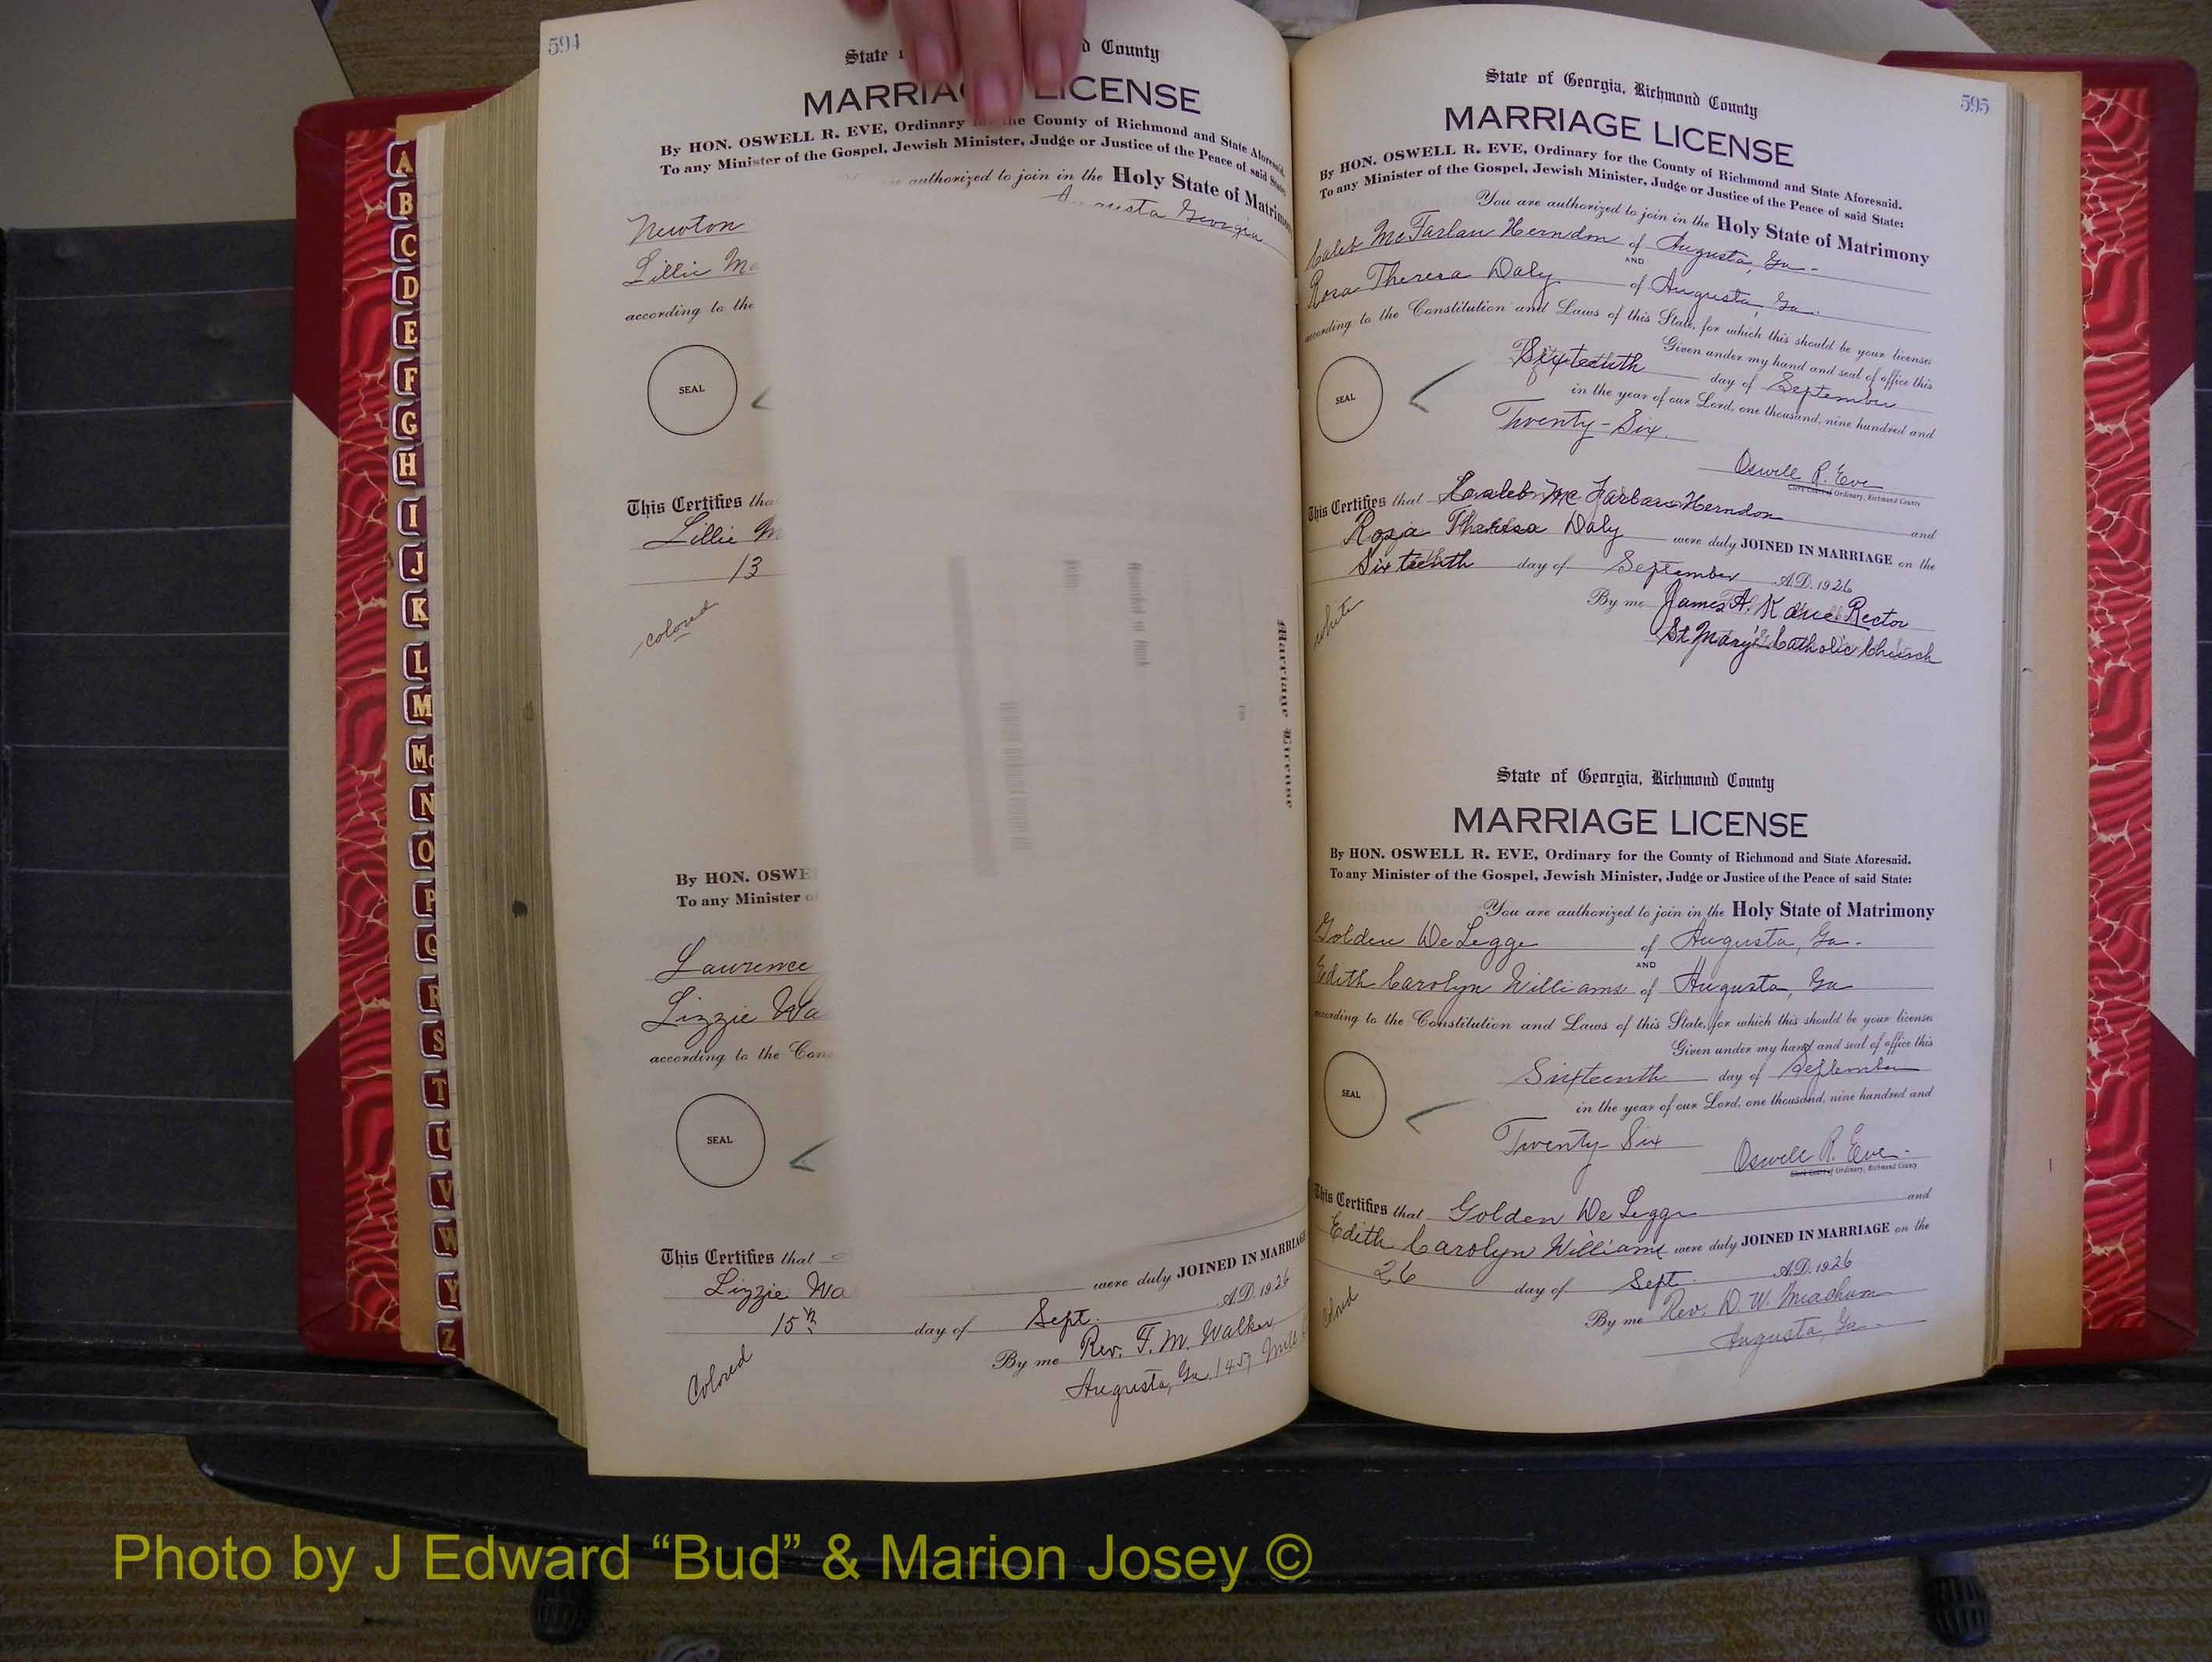 594
State County
MARRIAGE LICENSE
By HON. OSWELL R. EVE, Ordinary the County of Richmond and State Aforesaid.
To any Minister of the Gospel, Jewish Minister, Judge or Justice of the Peace of said State:
authorized to join in the Holy State of Matrimony
Augusta Georgia
Newton
Lillie Ma
according to the
SEAL
This Certifies that
Lillie M
13
colored
Marriage License
By HON. OSWE
To any Minister of
Lawrence
Lizzie Wa
according to the Cons
SEAL
This Certifies that
Lizzie Wa were duly JOINED IN MARRIAGE
15th day of Sept. A.D. 1926
By me Rev. F. M. Walker
Augusta, Ga. 1457 Mill
Colored
595
State of Georgia, Richmond County
MARRIAGE LICENSE
By HON. OSWELL R. EVE, Ordinary for the County of Richmond and State Aforesaid.
To any Minister of the Gospel, Jewish Minister, Judge or Justice of the Peace of said State:
You are authorized to join in the Holy State of Matrimony
Caleb McFarlan Herndon of Augusta, Ga.
AND
Rosa Theresa Daly of Augusta, Ga.
according to the Constitution and Laws of this State, for which this should be your license
Given under my hand and seal of office this
Sixteenth day of September
in the year of our Lord, one thousand, nine hundred and
Twenty-Six.
SEAL
Oswell R. Eve
Clerk Court of Ordinary, Richmond County
This Certifies that Caleb Mc Farlan Herndon and
Rosa Theresa Daly were duly JOINED IN MARRIAGE on the
Sixteenth day of September A.D. 1926
By me James A. Kane Rector
St Mary's Catholic Church
white
State of Georgia, Richmond County
MARRIAGE LICENSE
By HON. OSWELL R. EVE, Ordinary for the County of Richmond and State Aforesaid.
To any Minister of the Gospel, Jewish Minister, Judge or Justice of the Peace of said State:
You are authorized to join in the Holy State of Matrimony
Golden De Legge of Augusta, Ga.
AND
Edith Carolyn Williams of Augusta, Ga
according to the Constitution and Laws of this State, for which this should be your license
Given under my hand and seal of office this
Sixteenth day of September
in the year of our Lord, one thousand, nine hundred and
Twenty-Six
SEAL
Oswell R. Eve.
Clerk Court of Ordinary, Richmond County
This Certifies that Golden De Legge and
Edith Carolyn Williams were duly JOINED IN MARRIAGE on the
26 day of Sept. A.D. 1926
By me Rev. D. W. Meachum
Augusta, Ga.
Colored
A
B
C
D
E
F
G
H
I
J
K
L
M
Mc
N
O
P
Q
R
S
T
U
V
W
Y
Z
Photo by J Edward “Bud” & Marion Josey ©